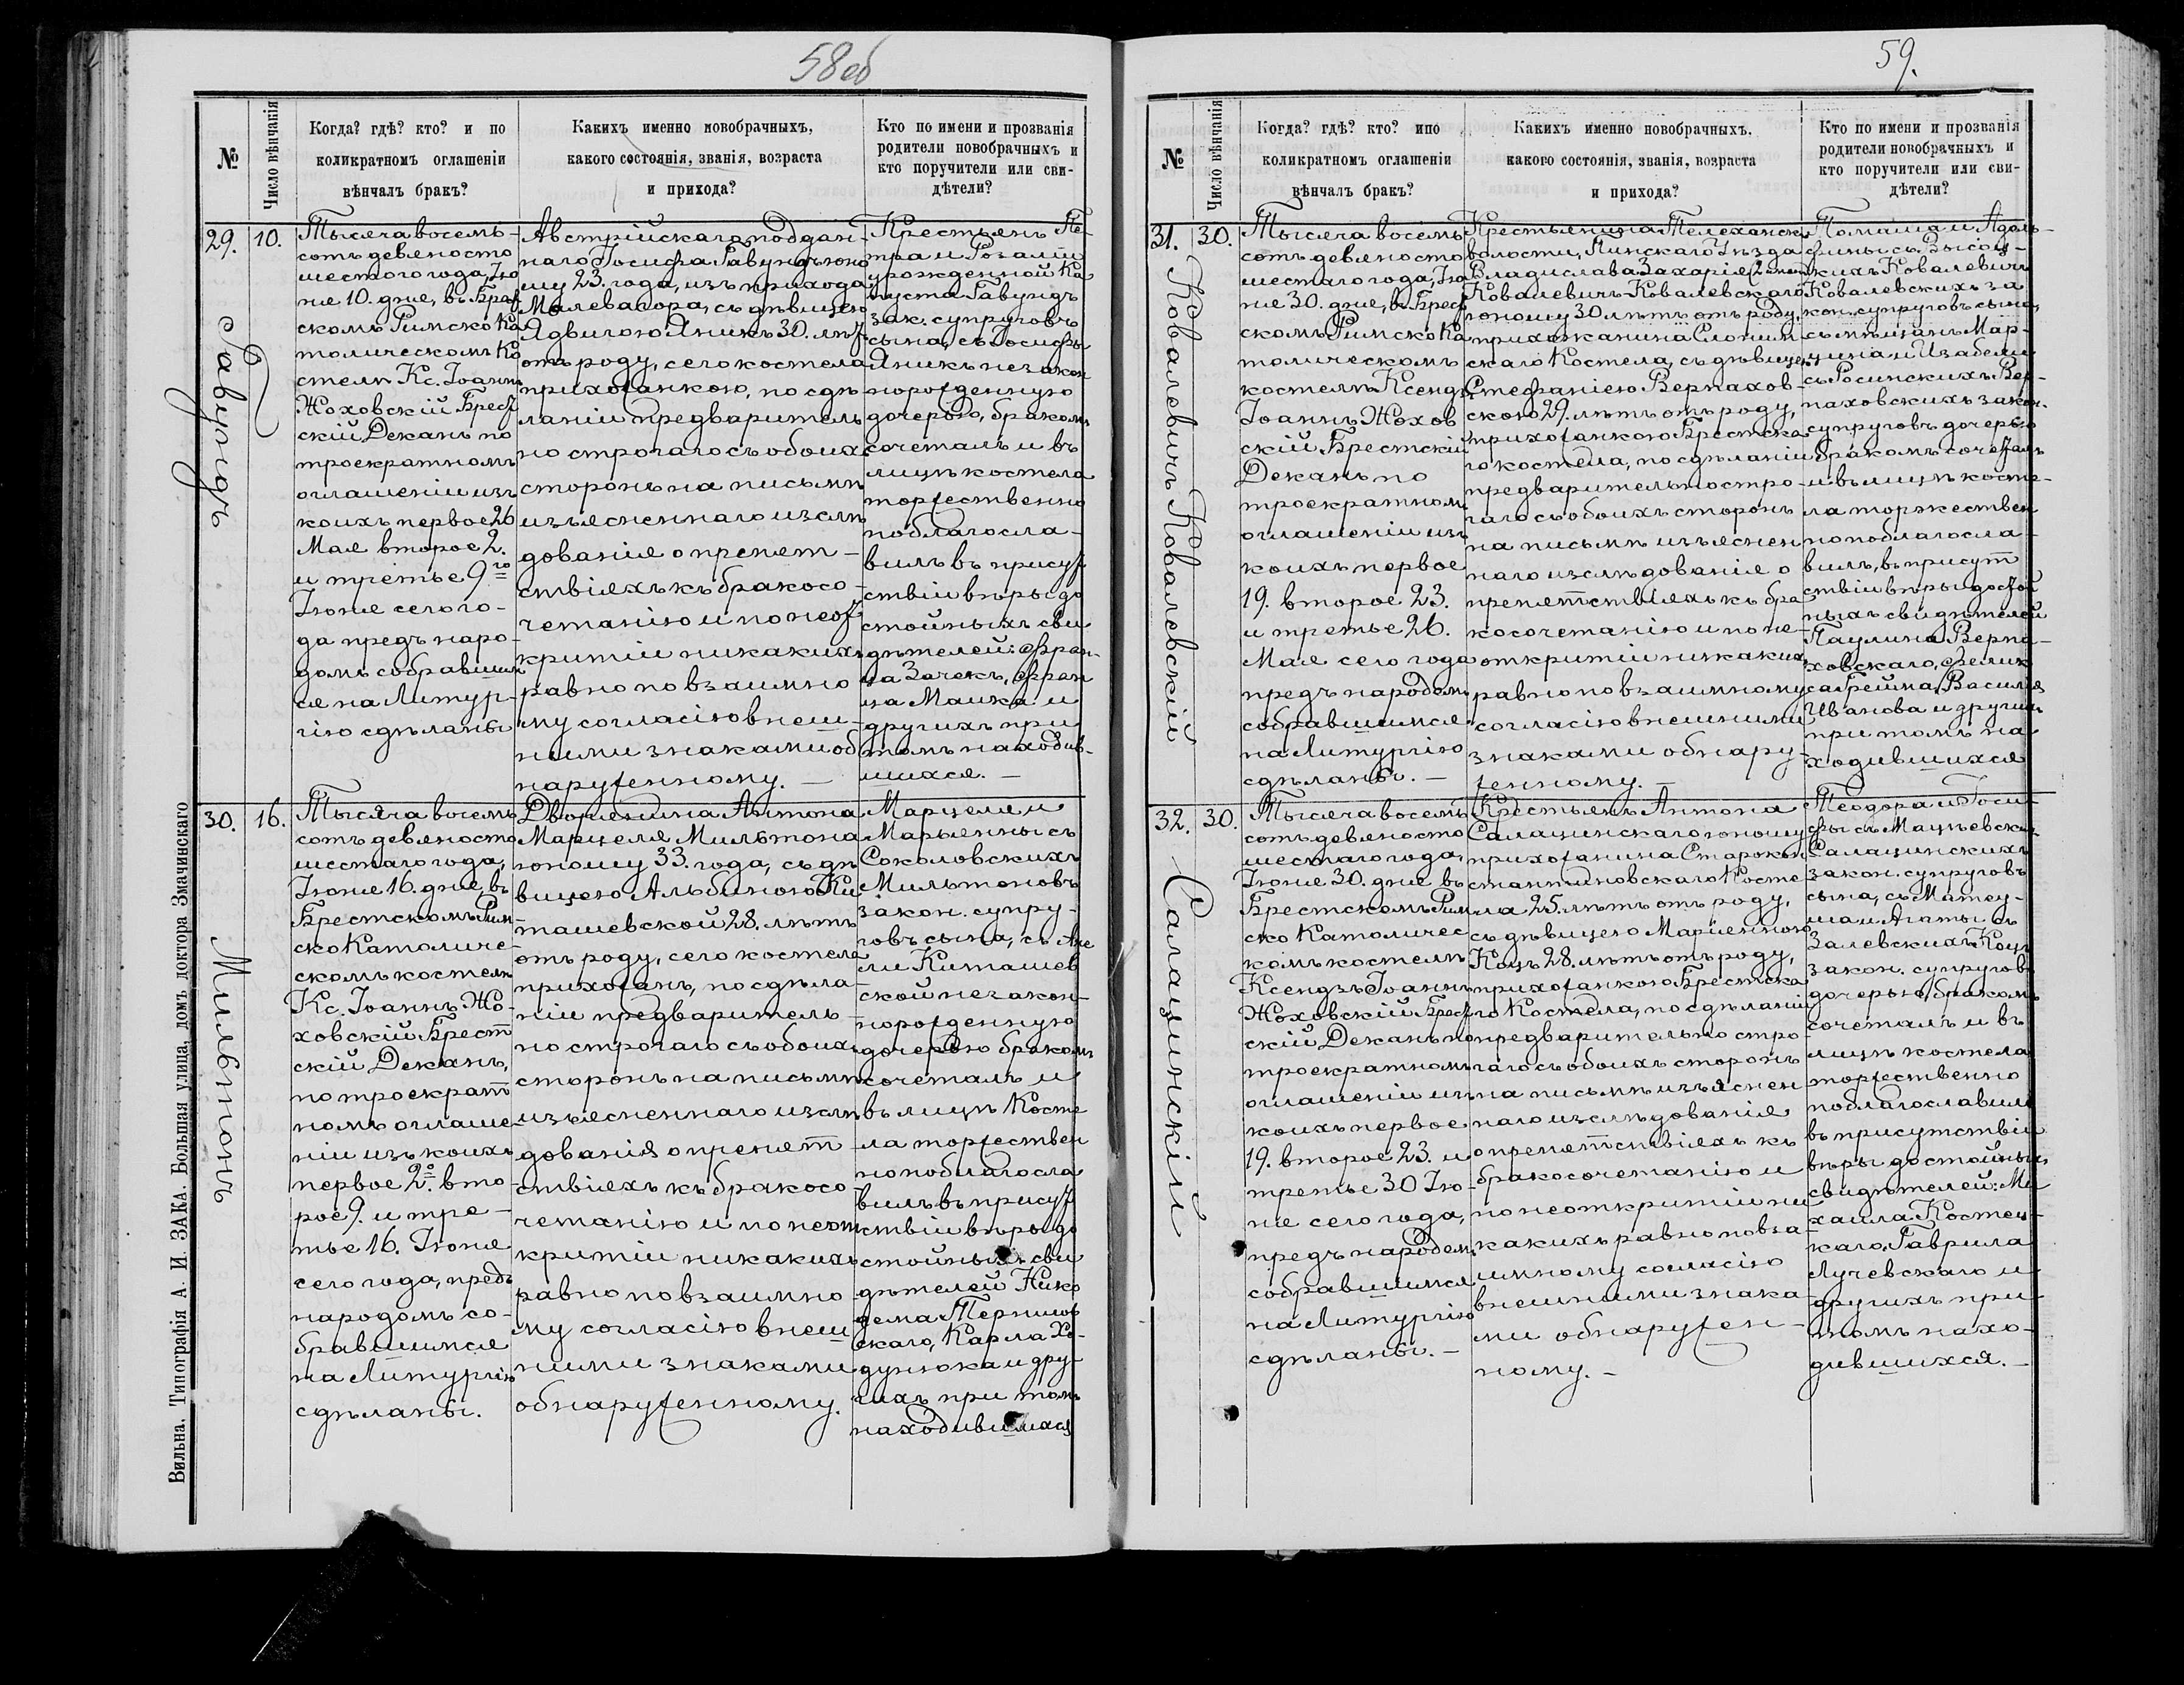 58об
№
Число вѣнчанія
Когда? гдѣ? кто? и по
коликратномъ оглашеніи
вѣнчалъ бракъ?
Какихъ именно новобрачныхъ,
какого состоянія, званія, возраста
и прихода?
Кто по имени и прозванія
родители новобрачныхъ и
кто поручители или сви-
дѣтели?
29.
10.
Гавундъ
Тысяча восемь-
сотъ девяносто
шестого года, Ію
ня 10. дня, въ Брест
скомъ Римско Ка
толическомъ Ко
стелѣ Кс. Іоаннъ
Жоховскій Брест
скій Деканъ по
троекратномъ
оглашеніи изъ
коихъ первое 26
Мая второе 2.
и третье 9го
Іюня сего го-
да предъ наро-
домъ собравшим
ся на Литур-
гію сдѣланы
Австрійскаго поддан-
наго Іосифа Гавундъ юно
шу 23. года, изъ прихода
Малевагора, съ дѣвицею
Ядвигою Яникъ 30. лѣт
отъ роду, сего костела
прихожанкою, по сдѣ
ланіи предваритель
но строгаго съ обоихъ
сторонъ на письмѣ
изъясненнаго изслѣ
дованія о препят-
ствіяхъ къ бракосо-
четанію и по неот
критіи никакихъ
равно по взаимно
му согласію внеш-
ними знаками об
наруженному. —
Крестьянъ Пе-
тра и Розаліи
урожденной Ка
пуста Гавундъ
зак. супруговъ
сына, съ Іосифы
Яникъ незакон
порожденную
дочерью, бракомъ
сочеталъ и въ
лицѣ костела
торжественно
поблагосла-
вилъ въ присут
ствіи вѣры до
стойныхъ сви
дѣтелей: Фран-
ца Зачекъ, Фран
ца Машка и
другихъ при
томъ находив-
шихся. —
30.
16.
Мильтонъ
Тысяча восемь
сотъ девяносто
шестаго года,
Іюня 16. дня, въ
Брестскомъ Рим
ско Католиче-
скомъ костелѣ
Кс. Іоаннъ Жо-
ховскій Брест
скій Деканъ,
по троекрат
номъ оглаше-
ніи изъ коихъ
первое 2о. вто-
рое 9. и тре-
тье 16. Іюня
сего года, предъ
народомъ со-
бравшимся
на Литургію
сдѣланы.
Дворянина Антона
Марцеля Мильтона
юношу 33. года, съ дѣ
вицею Альбиною Ки
ташевской 28. лѣтъ
отъ роду, сего костела
прихожанъ, по сдѣла-
ніи предваритель-
но строгаго съ обоихъ
сторонъ на письмѣ
изъясненнаго изслѣ
дованія о препят-
ствіяхъ къ бракосо-
четанію и по неот
критіи никакихъ
равно по взаимно
му согласію внеш
ними знаками
обнаруженному.
Марцеля и
Марьянны съ
Соколовскихъ
Мильтоновъ
закон. супру-
говъ сына, съ Ане
ли Киташев
ской незакон-
порожденную
дочерью бракомъ
сочеталъ и
въ лицѣ Косте
ла торжествен
но поблагосла
вилъ въ присут
ствіи вѣры до
стойныхъ сви
дѣтелей Нико
дема Терпилов
скаго, Карла Хо-
дунюка и дру-
гихъ при томъ
находившихся
Вильна. Типографія А. И. ЗАКА. Большая улица, домъ доктора Змачинскаго
59.
№
Число вѣнчанія
Когда? гдѣ? кто? ипо
коликратномъ оглашеніи
вѣнчалъ бракъ?
Какихъ именно новобрачныхъ,
какого состоянія, званія, возраста
и прихода?
Кто по имени и прозванія
родители новобрачныхъ и
кто поручители или сви-
дѣтели?
31.
30.
Ковалевичъ Ковалевскій
Тысяча восемь
сотъ девяносто
шестаго года, Ію
ня 30. дня, въ Брест
скомъ Римско Ка
толическомъ
костелѣ Ксендзъ
Іоаннъ Жохов
скій Брестскій
Деканъ по
троекратномъ
оглашеніи изъ
коихъ первое
19. второе 23.
и третье 26.
Мая сего года
предъ народомъ
собравшимся
на Литургію
сдѣланы. —
Крестьянина Телеханской
волости, Пинскаго Уѣзда
Владислава Захарія 2 имен
Ковалевичъ-Ковалевскаго
юношу 30 лѣтъ отъ роду,
прихожанина Слоним
скаго Костела, съ дѣвицею
Стефаніею Верпахов-
скою 29. лѣтъ отъ роду,
прихожанкою Брестска
го костела, по сдѣланіи
предварительно стро-
гаго съ обоихъ сторонъ
на письмѣ изъяснен
наго изслѣдованія о
препятствіяхъ къ бра
косочетанію и по не-
откритіи никакихъ
равно по взаимному
согласію внешними
знаками обнару-
женному. —
Томаша и Адоль-
фины съ Высоц-
кихъ Ковалевичъ
Ковалевскихъ за
кон. супруговъ сына,
съ мѣщанъ Мар-
цина и Изабели
съ Росинскихъ Вер-
паховскихъ закон.
супруговъ дочерью
бракомъ сочеталъ
и въ лицѣ косте-
ла торжествен
но поблагосла-
вилъ, въ присут
ствіи вѣры достой
ныхъ свидѣтелей
Паулина Верпа-
ховскаго, Фелик
са Грейма, Василія
Иванова и другихъ
при томъ на
ходившихся
32.
30.
Салацинскій
Тысяча восемь
сотъ девяносто
шестаго года,
Іюня 30. дня въ
Брестскомъ Рим
ско Католичес
комъ костелѣ
Ксендзъ Іоаннъ
Жоховскій Брест
скій Деканъ по
троекратномъ
оглашеніи изъ
коихъ первое
19. второе 23. и
третье 30 Ію-
ня сего года,
предъ народомъ
собравшимся
на Литургію
сдѣланы. —
Крестьянъ Антона
Салацинскаго юношу
прихожанина Старокон
стантиновскаго Косте
ла 25. лѣтъ отъ роду,
съ дѣвицею Маріенною
Коцъ 28. лѣтъ отъ роду,
прихожанкою Брестска
го Костела, по сдѣланіи
предварительно стро-
гаго съ обоихъ сторонъ
на письмѣ изъяснен
наго изслѣдованія
о препятствіяхъ къ
бракосочетанію и
по неоткритіи ни
какихъ равно по вза-
имному согласію
внешними знака-
ми обнаружен-
ному. —
Теодора и Іоси-
фы съ Мацѣевских
Салацинскихъ
закон. супруговъ
сына, съ Матеу-
ша и Агаты съ
Залевскихъ Коцъ
закон. супруговъ
дочерью, бракомъ
сочеталъ и въ
лицѣ костела
торжественно
поблагославилъ
въ присутствіи
вѣры достойныхъ
свидѣтелей: Ми
хаила Костец-
каго, Гаврила
Лучевскаго и
другихъ при
томъ нахо-
дившихся. —